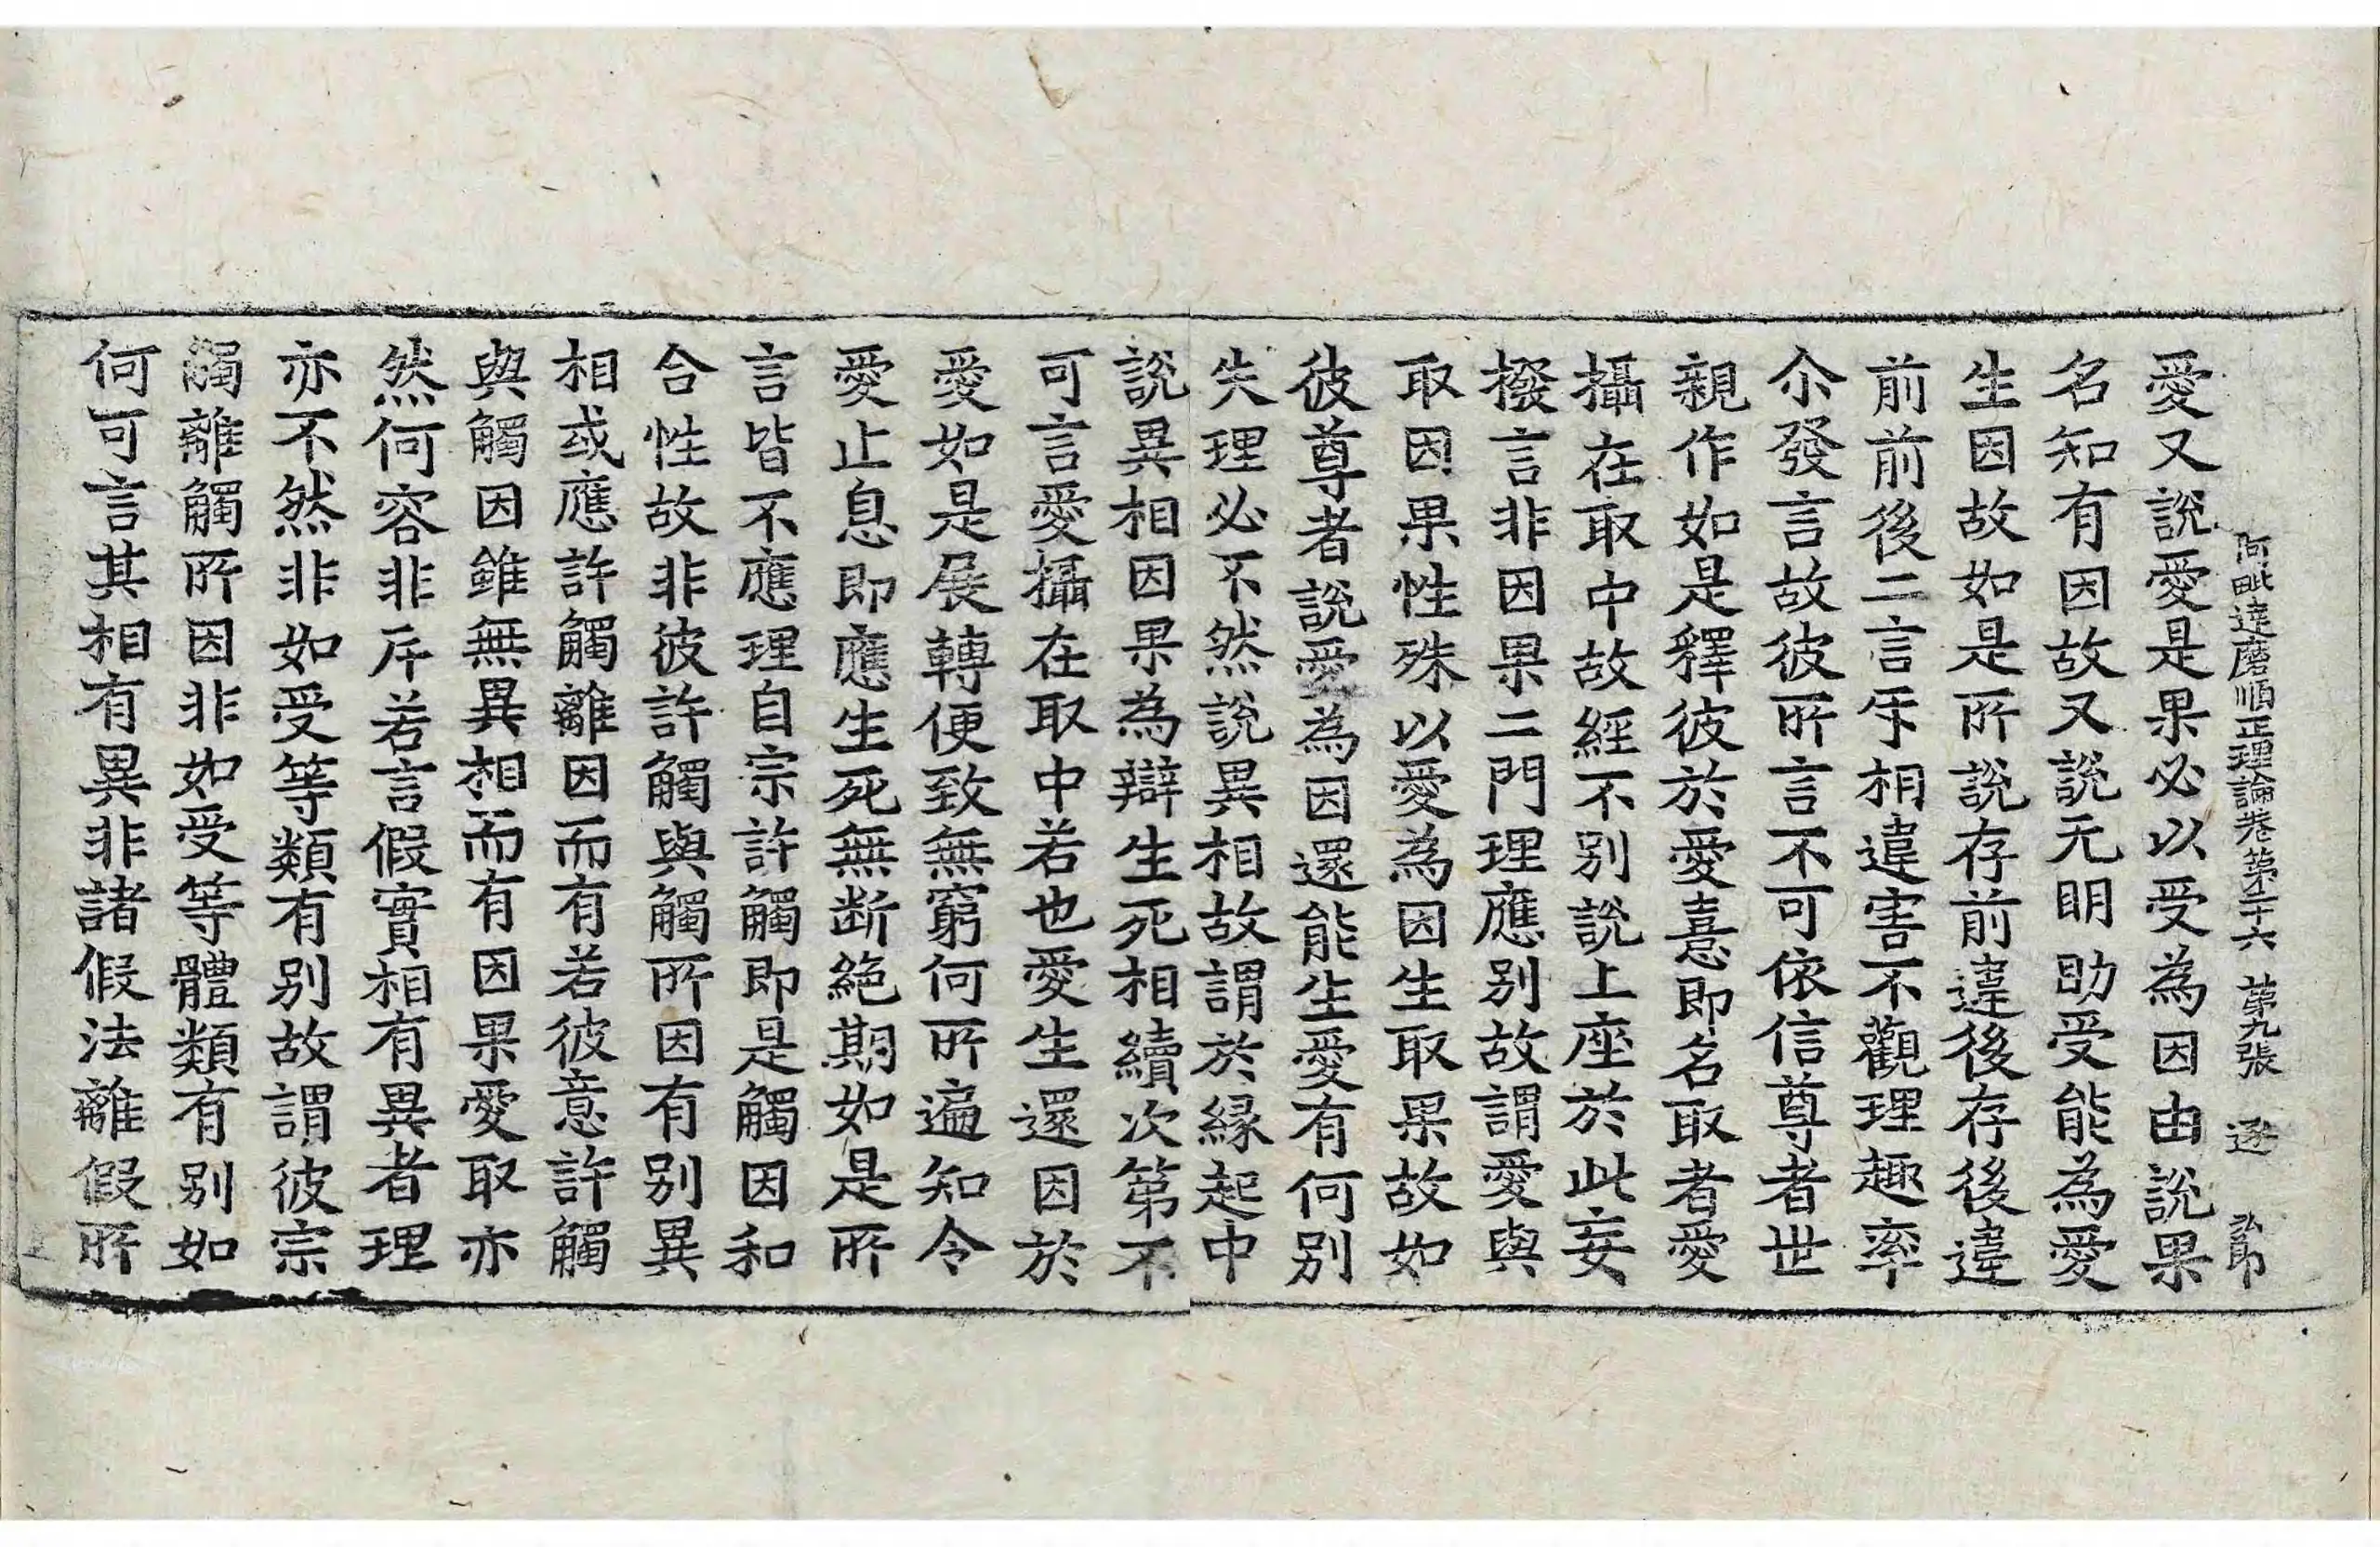 阿毗達磨順正理論卷第二十六 第九張 逐 弘印
愛又說愛是果必以受為因由說果
名知有因故又說无明助受能為愛
生因故如是所說存前違後存後違
前前後二言斥相違害不觀理趣率
尒發言故彼所言不可依信尊者世
親作如是釋彼於愛憙即名取者愛
攝在取中故經不別說上座於此妄
撥言非因果二門理應別故謂愛與
取因果性殊以愛為因生取果故如
彼尊者說愛為因還能生愛有何別
失理必不然說異相故謂於緣起中
說異相因果為辯生死相續次第不
可言愛攝在取中若也愛生還因於
愛如是展轉便致無窮何所遍知令
愛止息即應生死無断絕期如是所
言皆不應理自宗許觸即是觸因和
合性故非彼許觸與觸所因有別異
相或應許觸離因而有若彼意許觸
與觸因雖無異相而有因果愛取亦
然何容非斥若言假實相有異者理
亦不然非如受等類有別故謂彼宗
觸離觸所因非如受等體類有別如
何可言其相有異非諸假法離假所